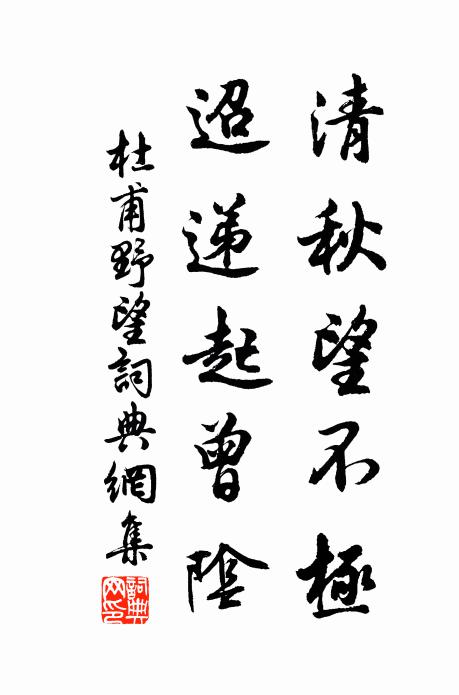 清秋望不極
迢遞起曾陰
杜甫野望詞典網集
詞典網印